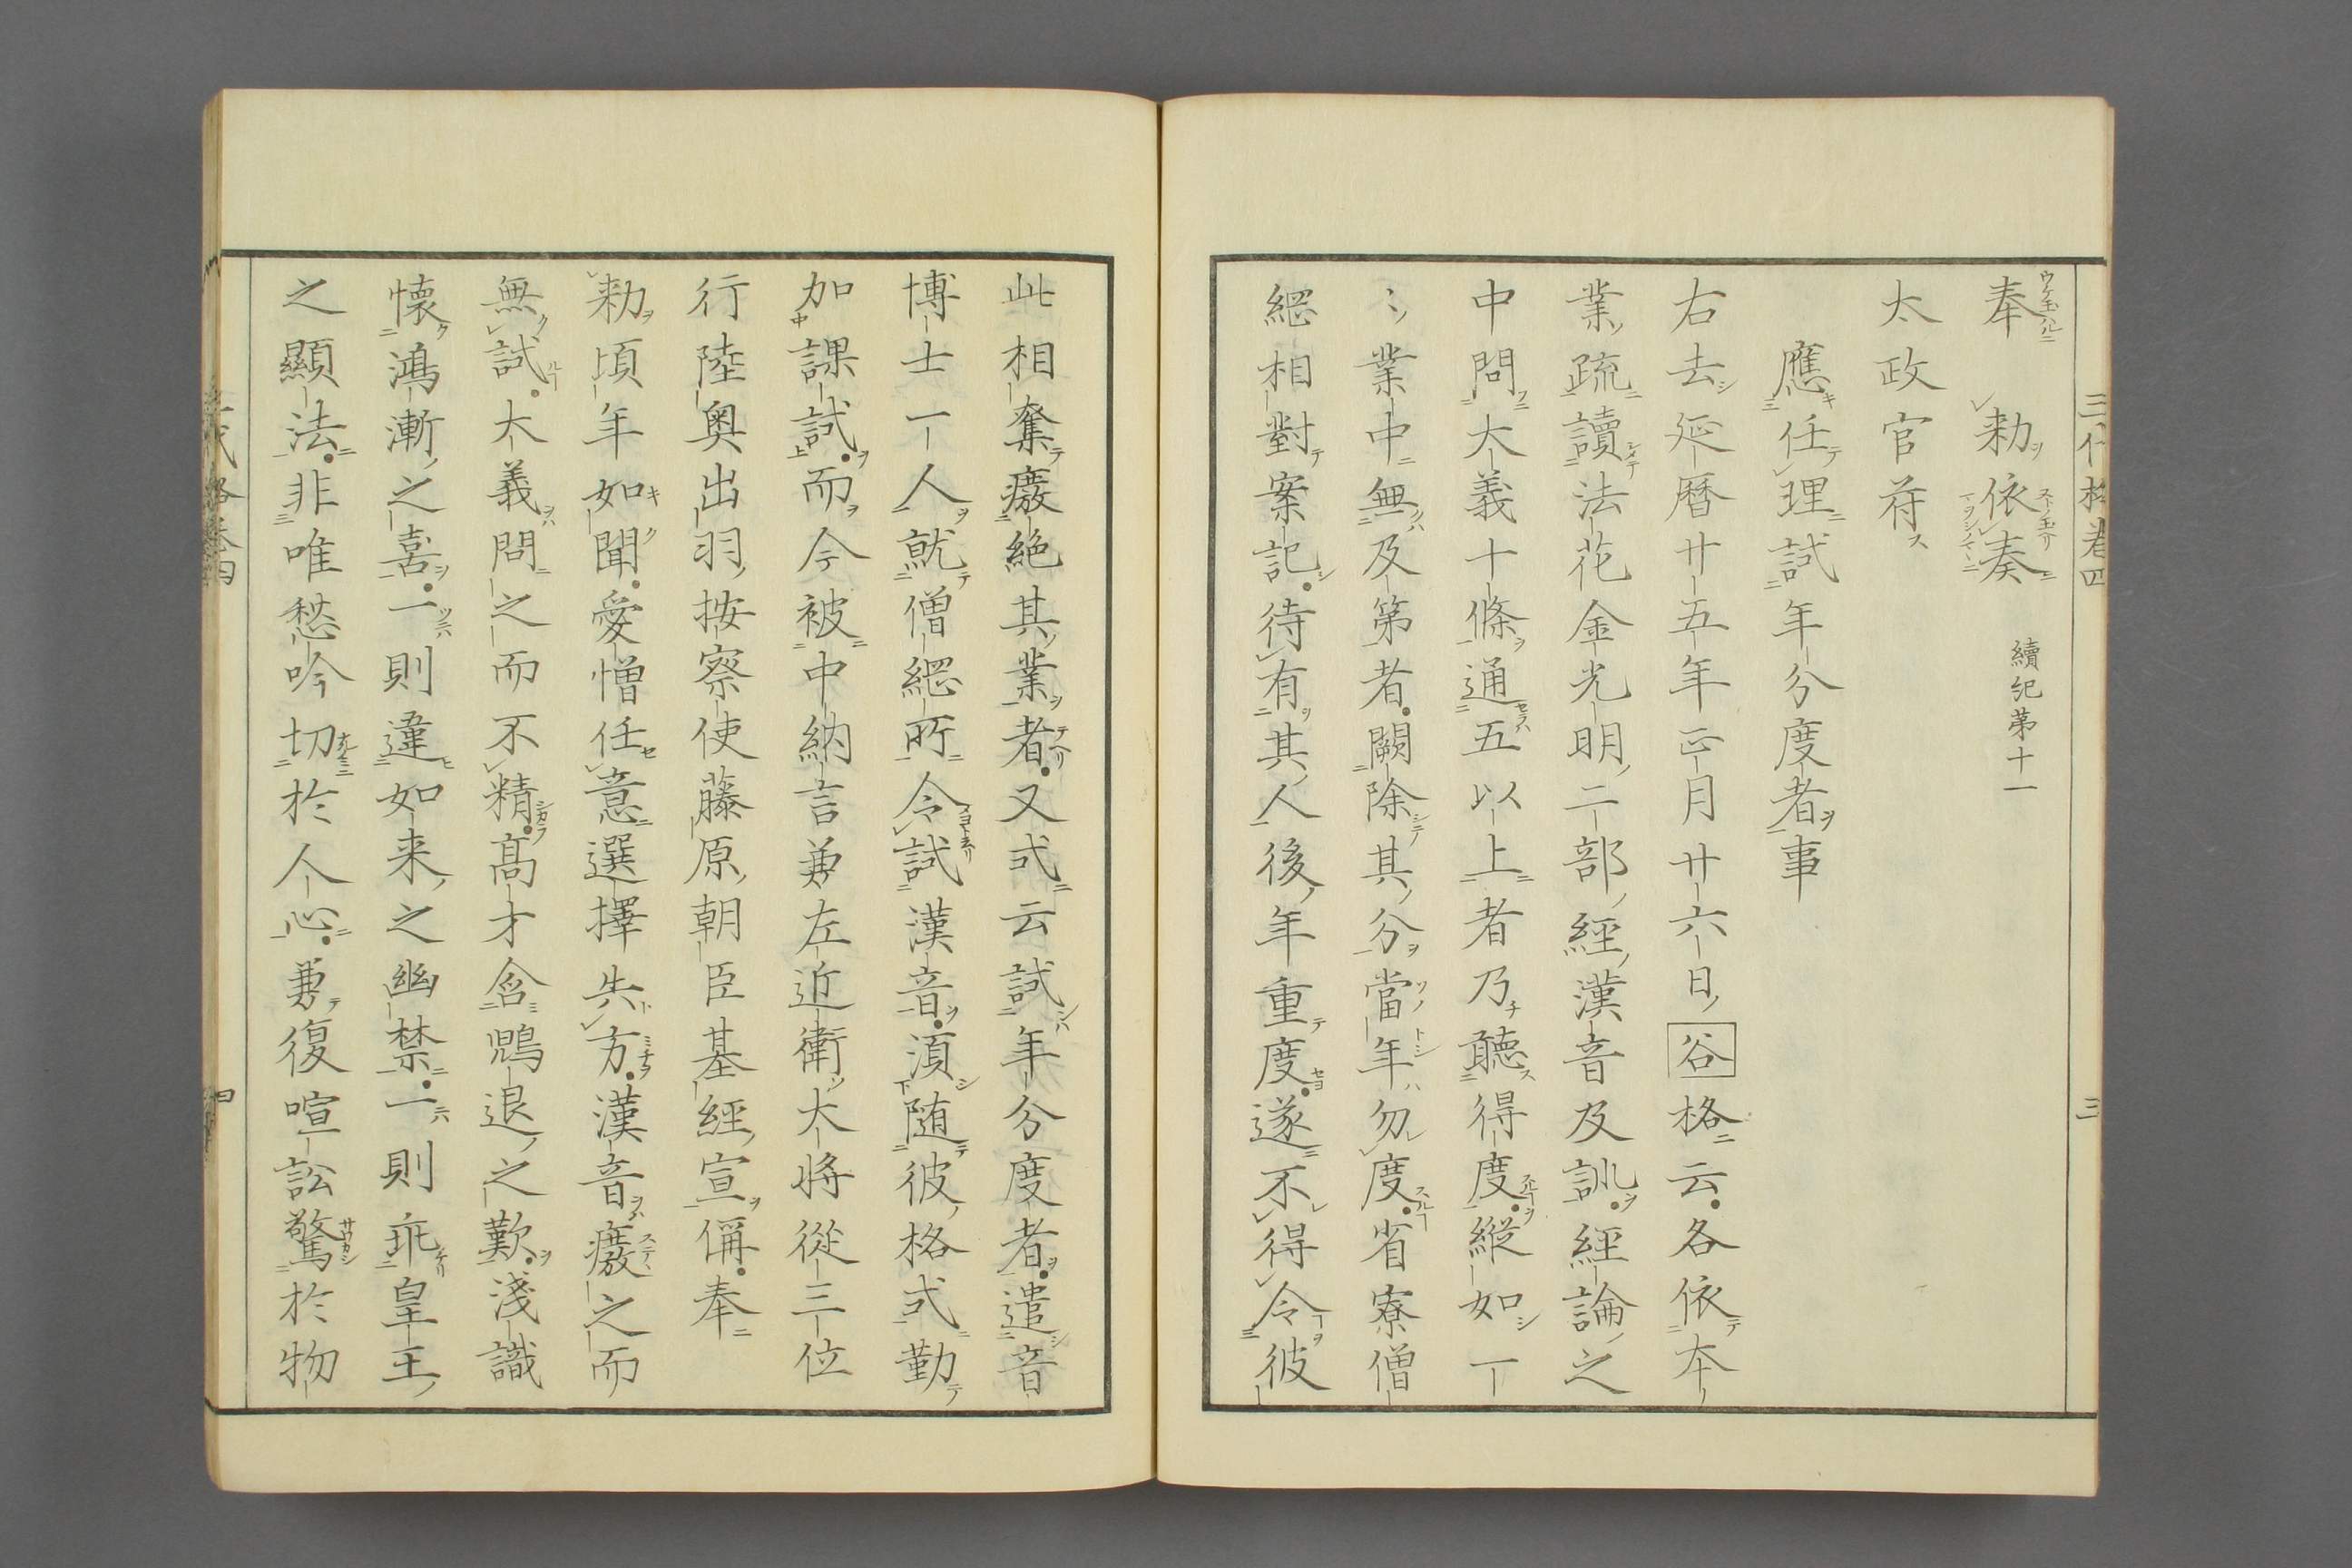 三代格卷四 三
奉 勅依奏 續紀第十一
太政官符
應任理試年分度者事
右去延曆廿五年正月廿六日谷格云各依本
業疏讀法花金光明二部經漢音及訓經論之
中問大義十條通五以上者乃聽得度縱如一
〻業中無及第者闕除其分當年勿度省寮僧
綱相對案記待有其人後年重度遂不得令彼
此相奪癈絶其業者又式云試年分度者遣音
博士一人就僧綱所令試漢音湏随彼格式勤
加課試而今被中納言兼左近衛大将從三位
行陸奥出羽按察使藤原朝臣基經宣偁奉
勅頃年如聞愛憎任意選擇失方漢音癈之而
無試大義問之而不精髙才含鶂退之歎淺識
懷鴻漸之喜一則違如来之幽禁一則乖皇王
之顯法非唯愁吟切於人心兼復喧訟驚於物